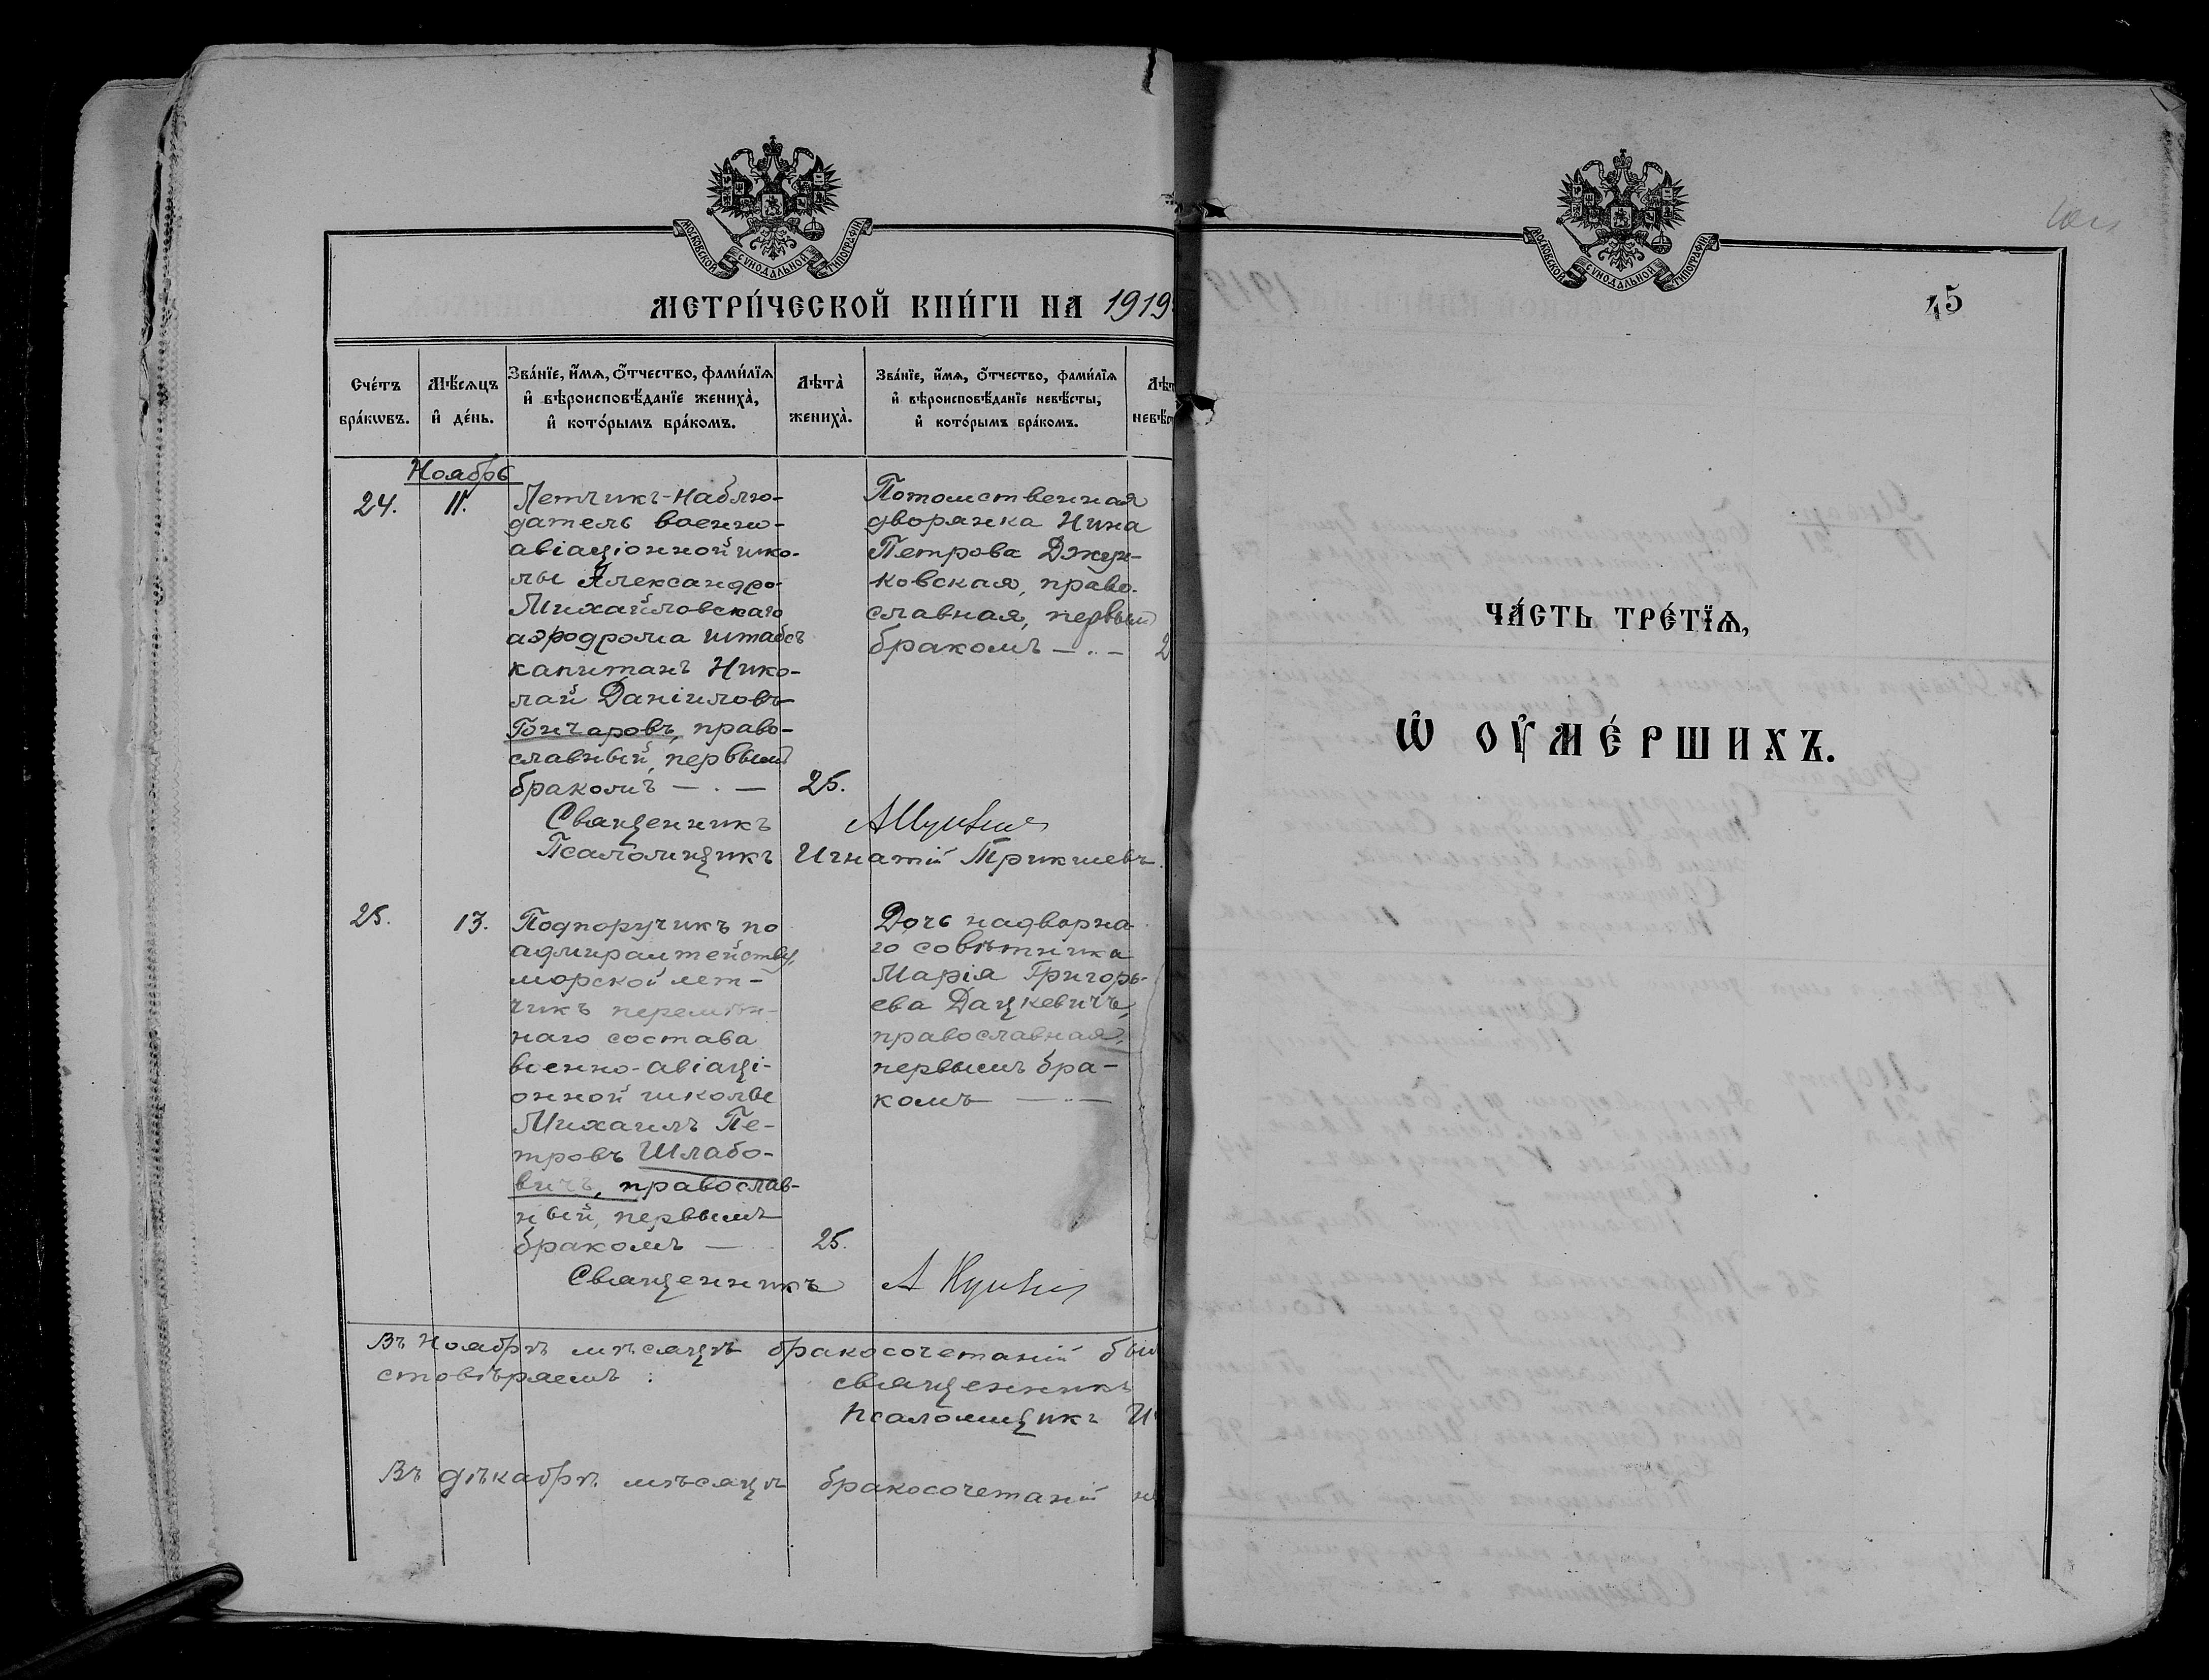 МОСКОВСКОЙ СѴНОДАЛЬНОЙ ТИПОГРАФІИ
МЕТРИ́ЧЕСКОЙ КНИ́ГИ НА 1919
Сче́тъ бра́кѡвъ.
Мѣ́сяцъ и҆ де́нь.
Зва́нїе, и҆́мѧ, ѻ҆́тчество, фами́лїѧ и҆ вѣроисповѣ́данїе жениха̀, и҆ кото́рымъ бра́комъ.
Лѣта̀ жениха̀.
Зва́нїе, и҆́мѧ, ѻ҆́тчество, фами́лїѧ и҆ вѣроисповѣ́данїе невѣ́сты, и҆ кото́рымъ бра́комъ.
Ноябрь
24. 11.
Летчикъ-наблю-
датель военно-
авіаціонной шко-
лы Александро-
Михайловскаго
аэродрома штабсъ
капитанъ Нико-
лай Даніиловъ
Гончаровъ, право-
славный, первымъ
бракомъ — . — 25.
Потомственная
дворянка Нина
Петрова Джун-
ковская, право-
славная, первым
бракомъ — .. — 2
Священникъ
Псаломщикъ Игнатій Трикишевъ.
25. 13.
Подпоручикъ по
адмиралтейству,
морской лет-
чикъ перемѣн-
наго состава
военно-авіаці-
онной школы
Михаилъ Пе-
тровъ Шлабо-
вичъ, православ-
ный, первымъ
бракомъ — 25.
Дочь надворна-
го совѣтника
Марія Григорь-
ева Дацкевичъ,
православная,
первымъ бра-
комъ — .. —
Священникъ
Въ ноябрѣ мѣсяцѣ бракосочетаній бы
стовѣряемъ :
священникъ
псаломщикъ И
Въ дѣкабрѣ мѣсяцѣ бракосочетаній н
МОСКОВСКОЙ СѴНОДАЛЬНОЙ ТИПОГРАФІИ
45
ЧА́СТЬ ТРЕ́ТЇѦ,
Ѡ҆ ОУ҆МЕ́РШИХЪ.